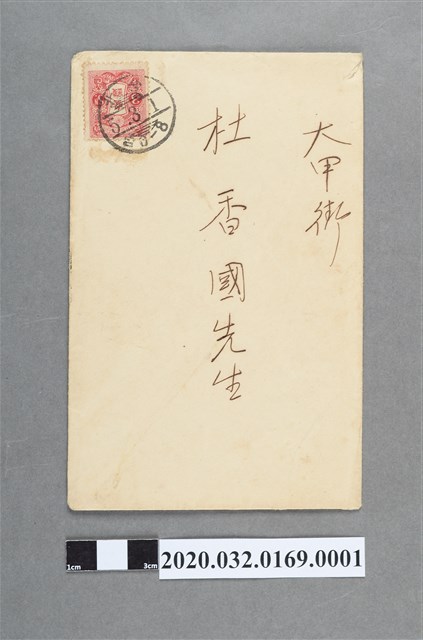 大甲街
杜香國先生
1cm 3cm
2020.032.0169.0001